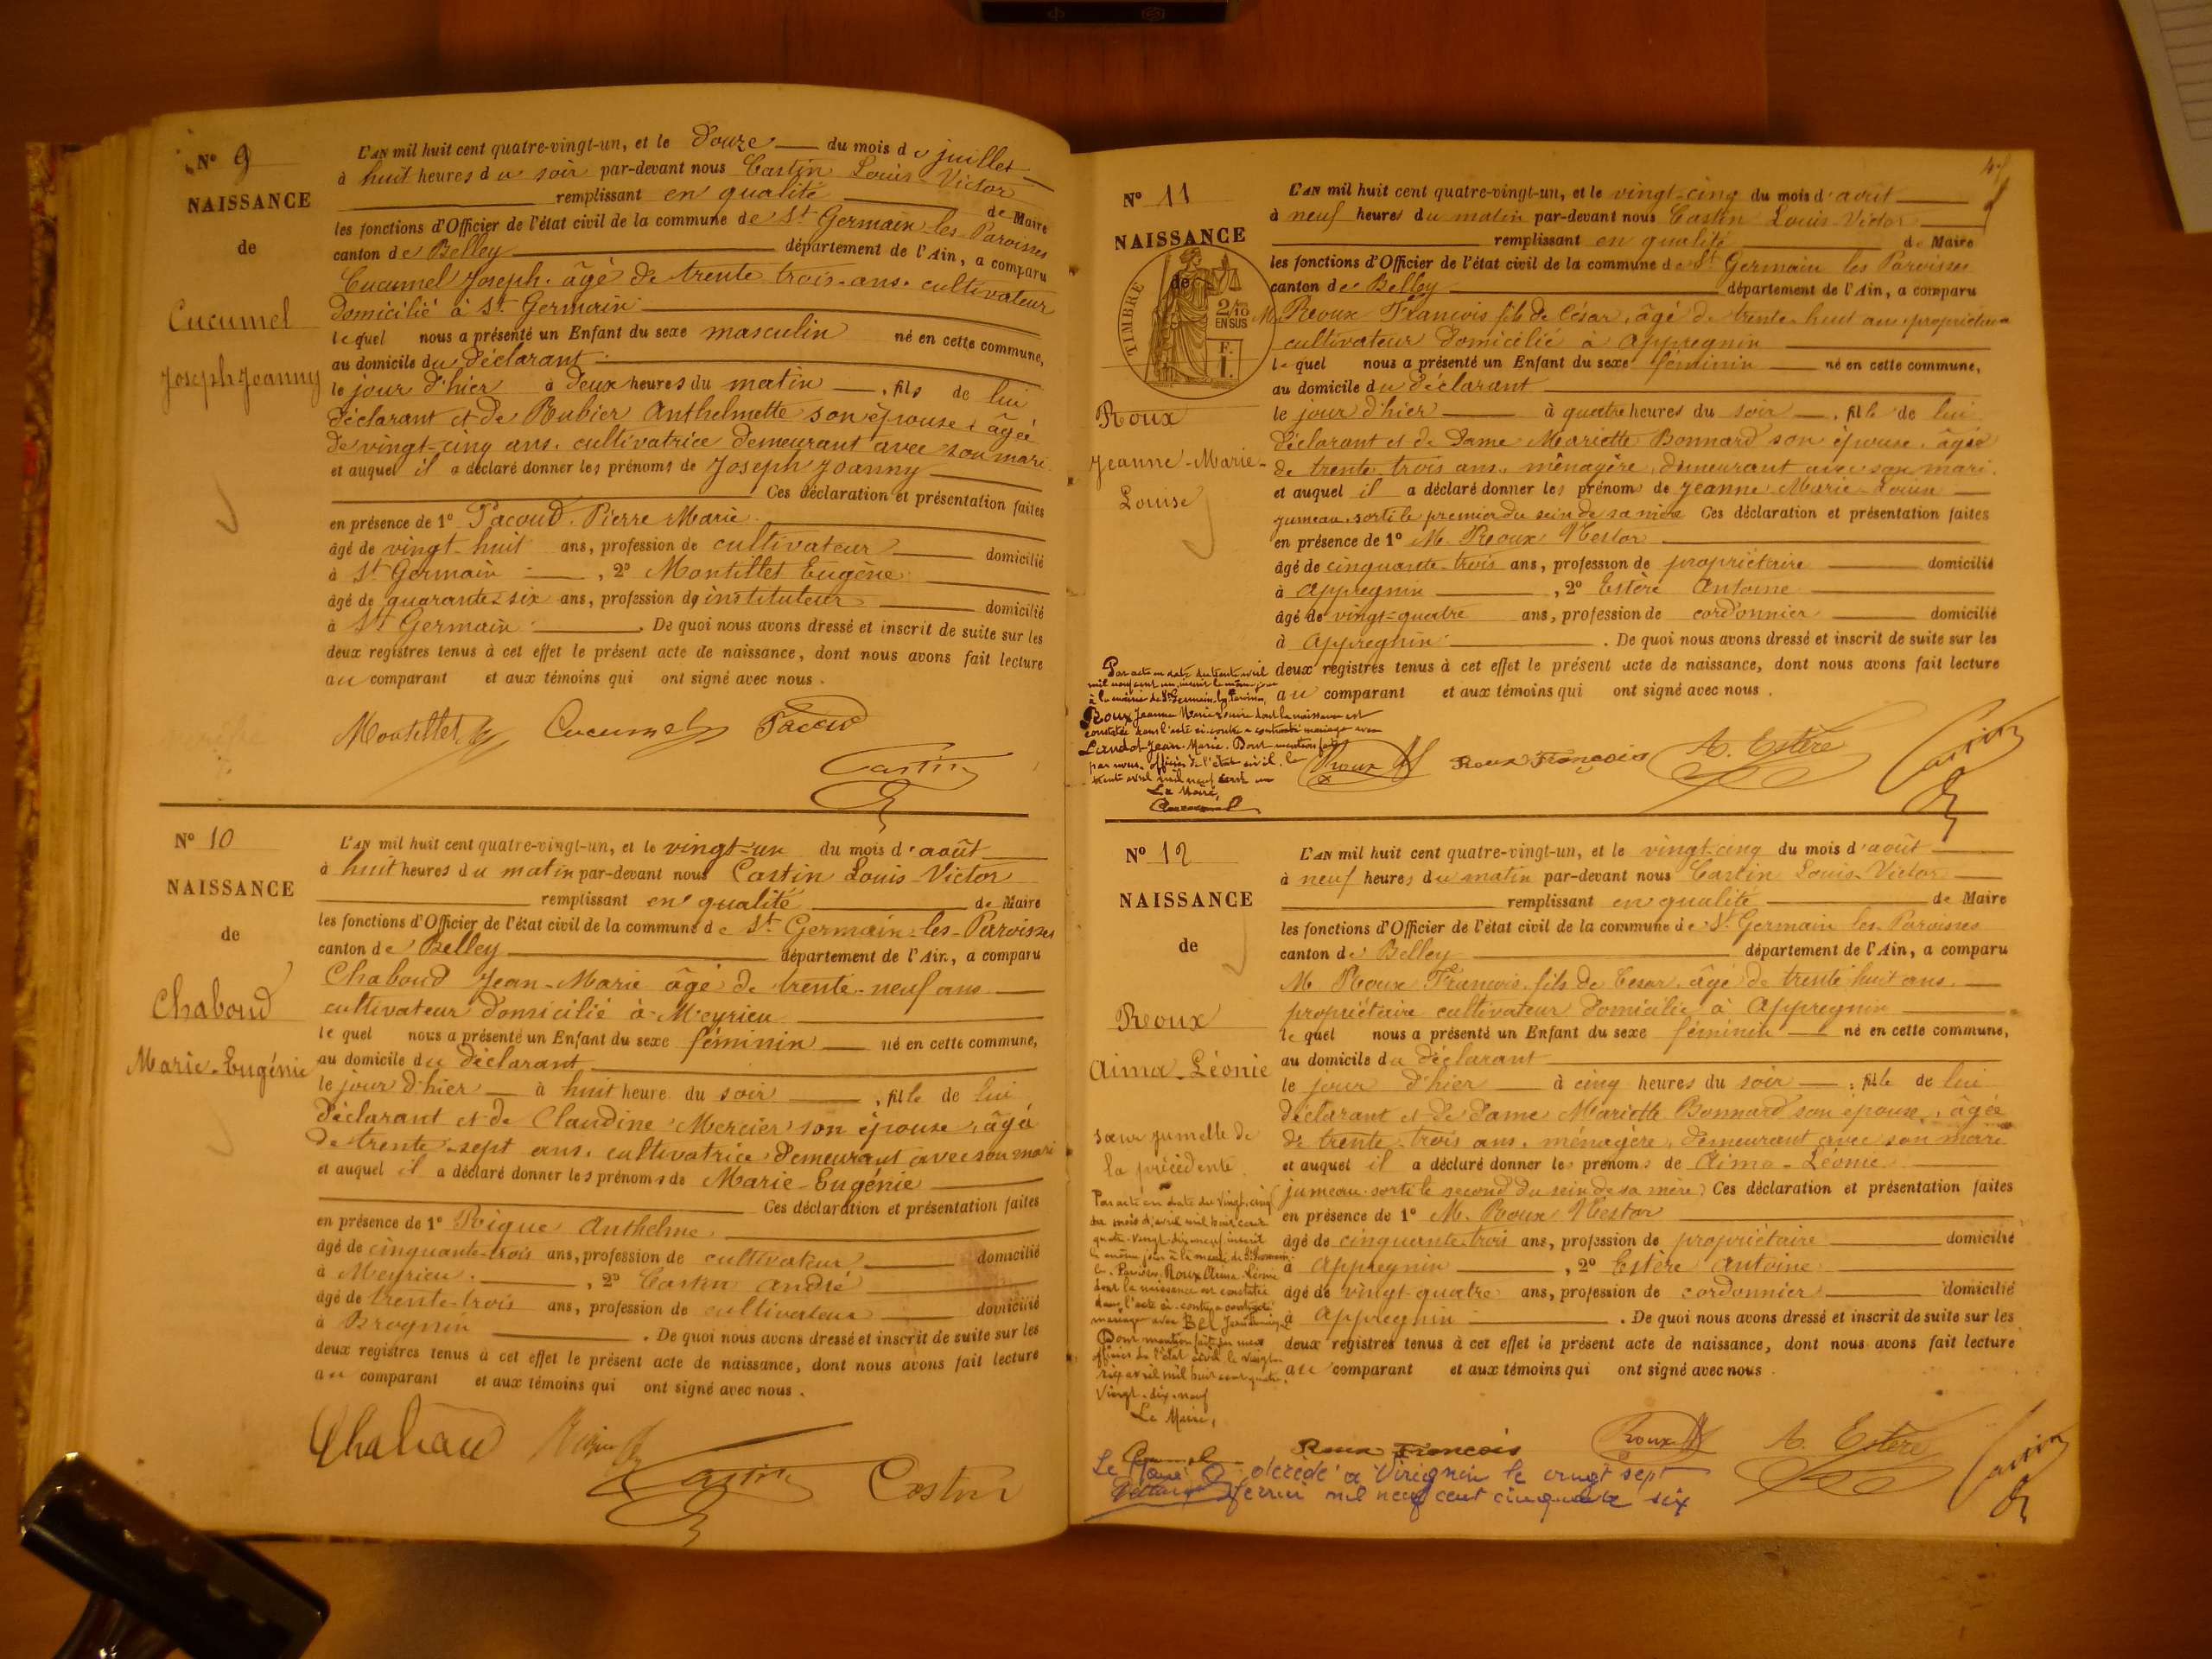 N° 9
NAISSANCE
de
Cucumel
Joseph Joanny
L'AN mil huit cent quatre-vingt-un, et le douze du mois de juillet
à huit heures du soir par-devant nous Castin Louis-Victor
remplissant en qualité de Maire
les fonctions d'Officier de l'état civil de la commune de St Germain-les-Paroisses
canton de Belley département de l'Ain, a comparu
Cucumel Joseph. âgé de trente trois ans. cultivateur
domicilié à St Germain
lequel nous a présenté un Enfant du sexe masculin né en cette commune,
au domicile du déclarant
le jour d'hier à deux heures du matin, fils de lui
déclarant et de Rubier Anthelmette son épouse, âgée
de vingt-cinq ans. cultivatrice demeurant avec son mari
et auquel il a déclaré donner les prénoms de Joseph Joanny
Ces déclaration et présentation faites
en présence de 1° Pacoud Pierre Marie
âgé de vingt-huit ans, profession de cultivateur domicilié
à St Germain, 2° Montillet Eugène
âgé de quarante-six ans, profession de instituteur domicilié
à St Germain. De quoi nous avons dressé et inscrit de suite sur les
deux registres tenus à cet effet le présent acte de naissance, dont nous avons fait lecture
au comparant et aux témoins qui ont signé avec nous.
Montillet Cucumel Pacoud
Castin
N° 10
NAISSANCE
de
Chaboud
Marie-Eugénie
L'AN mil huit cent quatre-vingt-un, et le vingt-un du mois d'août
à huit heures du matin par-devant nous Castin Louis-Victor
remplissant en qualité de Maire
les fonctions d'Officier de l'état civil de la commune de St Germain-les-Paroisses
canton de Belley département de l'Ain, a comparu
Chaboud Jean-Marie âgé de trente-neuf ans
cultivateur domicilié à Meyrieu
lequel nous a présenté un Enfant du sexe féminin né en cette commune,
au domicile du déclarant
le jour d'hier à huit heure du soir, fille de lui
déclarant et de Claudine Mercier son épouse, âgée
de trente-sept ans. cultivatrice demeurant avec son mari
et auquel il a déclaré donner les prénoms de Marie-Eugénie
Ces déclaration et présentation faites
en présence de 1° Rigue Anthelme
âgé de cinquante-trois ans, profession de cultivateur domicilié
à Meyrieu, 2° Castin André
âgé de trente-trois ans, profession de cultivateur domicilié
à Brognin. De quoi nous avons dressé et inscrit de suite sur les
deux registres tenus à cet effet le présent acte de naissance, dont nous avons fait lecture
au comparant et aux témoins qui ont signé avec nous.
Chaboud
Castin Castin
N° 11
NAISSANCE
de
TIMBRE
2/10
EN SUS
F.
1.
Roux
Jeanne-Marie-
Louise
L'AN mil huit cent quatre-vingt-un, et le vingt-cinq du mois d'août
à neuf heures du matin par-devant nous Castin Louis-Victor
remplissant en qualité de Maire
les fonctions d'Officier de l'état civil de la commune de St Germain les Paroisses
canton de Belley département de l'Ain, a comparu
M. Roux François fils de César, âgé de trente-huit ans propriétaire
cultivateur domicilié à Appregnin
lequel nous a présenté un Enfant du sexe féminin né en cette commune,
au domicile du déclarant
le jour d'hier à quatre heures du soir, fille de lui
déclarant et de Dame Mariette Bonnard son épouse, âgée
de trente-trois ans, ménagère, demeurant avec son mari.
et auquel il a déclaré donner les prénoms de Jeanne-Marie-Louise
jumeau. sorti le premier du sein de sa mère Ces déclaration et présentation faites
en présence de 1° M. Roux Nestor
âgé de cinquante-trois ans, profession de propriétaire domicilié
à Appregnin, 2° Estère Antoine
âgé de vingt-quatre ans, profession de cordonnier domicilié
à Appregnin. De quoi nous avons dressé et inscrit de suite sur les
deux registres tenus à cet effet le présent acte de naissance, dont nous avons fait lecture
au comparant et aux témoins qui ont signé avec nous.
Par acte en date du trente avril
mil neuf cent un, inscrit le même jour
à la mairie de St Germain-les-Paroisses,
Roux Jeanne Marie Louise dont la naissance est
constatée dans l'acte ci-contre a contracté mariage avec
Landot Jean-Marie. Dont mention faite
par nous, officier de l'état civil. le
trente avril mil neuf cent un
Le Maire,
Cucumel
Roux Roux François A. Estère Castin
N° 12
NAISSANCE
de
Roux
Aima-Léonie
sœur jumelle de
la précédente
L'AN mil huit cent quatre-vingt-un, et le vingt-cinq du mois d'août
à neuf heures du matin par-devant nous Castin Louis-Victor
remplissant en qualité de Maire
les fonctions d'Officier de l'état civil de la commune de St Germain les Paroisses
canton de Belley département de l'Ain, a comparu
M. Roux François fils de César, âgé de trente huit ans
propriétaire cultivateur domicilié à Appregnin
lequel nous a présenté un Enfant du sexe féminin né en cette commune,
au domicile du déclarant
le jour d'hier à cinq heures du soir, fille de lui
déclarant et de dame Mariette Bonnard son épouse, âgée
de trente-trois ans. ménagère, demeurant avec son mari
et auquel il a déclaré donner les prénoms de Aima-Léonie
(jumeau sorti le second du sein de sa mère) Ces déclaration et présentation faites
en présence de 1° M. Roux Nestor
âgé de cinquante-trois ans, profession de propriétaire domicilié
à Appregnin, 2° Estère Antoine
âgé de vingt-quatre ans, profession de cordonnier domicilié
à Appregnin. De quoi nous avons dressé et inscrit de suite sur les
deux registres tenus à cet effet le présent acte de naissance, dont nous avons fait lecture
au comparant et aux témoins qui ont signé avec nous.
Par acte en date du vingt-cinq
du mois d'avril mil huit cent
quatre-vingt-dix-neuf inscrit
le même jour à la mairie de St Germain-
les-Paroisses, Roux Aima-Léonie
dont la naissance est constatée
dans l'acte ci-contre a contracté
mariage avec
Dont mention faite par nous
officier de l'état civil le vingt-
six avril mil huit cent quatre-
vingt-dix-neuf
Le Maire,
Cucumel
Roux François Roux A. Estère Castin
décédé à Virignin le vingt sept
février mil neuf cent cinquante six